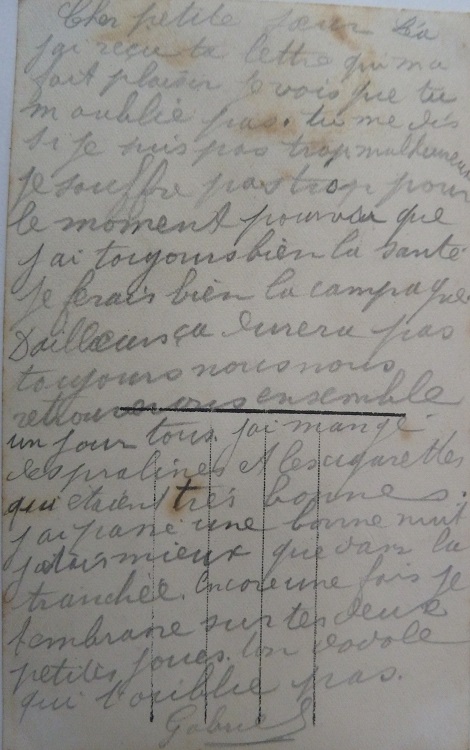 Cher petite sœur Léa
j'ai reçu ta lettre qui ma
fait plaisir je vois que tu
m oublie pas. tu me dis
si je suis pas trop malheureux
je souffre pas trop pour
le moment pourvu que
j'ai toujours bien la santé
je ferais bien la campagne
Dailleurs ça durera pas
toujours nous nous
retrouverons ensemble
un jour tous. j'ai mangé
les pralines et les cigarettes
qui etaient très bonnes.
j'ai passé une bonne nuit
j'etais mieux que dans la
tranchée. Encore une fois je
t'embrasse sur tes deux
petites joues. ton
qui t'oublie pas.
Gabriel